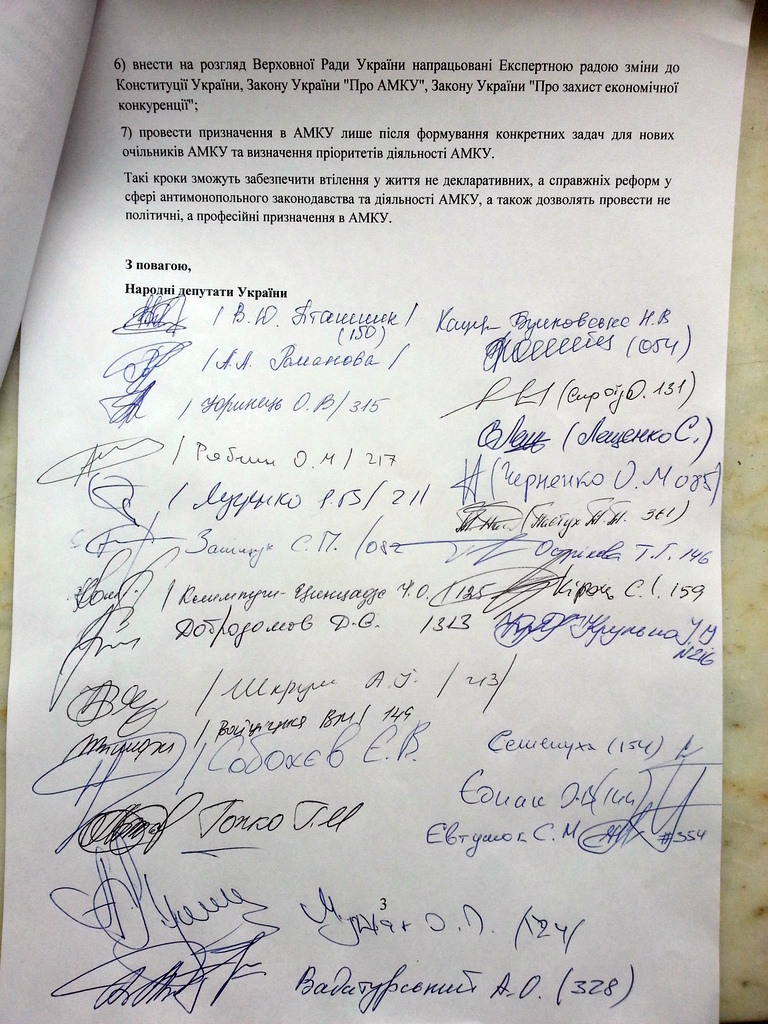 6) внести на розгляд Верховної Ради України напрацьовані Експертною радою зміни до
Конституції України, Закону України "Про АМКУ", Закону України "Про захист економічної
конкуренції";
7) провести призначення в АМКУ лише після формування конкретних задач для нових
очільників АМКУ та визначення пріоритетів діяльності АМКУ.
Такі кроки зможуть забезпечити втілення у життя не декларативних, а справжніх реформ у
сфері антимонопольного законодавства та діяльності АМКУ, а також дозволять провести не
політичні, а професійні призначення в АМКУ.
З повагою,
Народні депутати України
/ В.Ю. Пташник /
(150)
Н.В
/ А.А. Романова /
(054)
/ Юринець О.В / 315
(Сироїд О. 131)
(Лещенко С.)
/ Рябчин О.М / 217
(Черненко О.М 085)
/ Луценко І.В / 211
361)
Заліщук С.П. /082
Острікова Т.Г. 146
/ Климпуш-Цинцадзе І.О. /125
Кірош С.І. 159
Добродомов Д.Є. /313
N216
/ Шкрум А.І. / 213/
/ 149
/ Соболєв Є.В.
Семенуха (154)
Єднак О.В
Гопко Г.М
Євтушок С.М #354
3
О.П. /124/
Вадатурський А.О. (328)